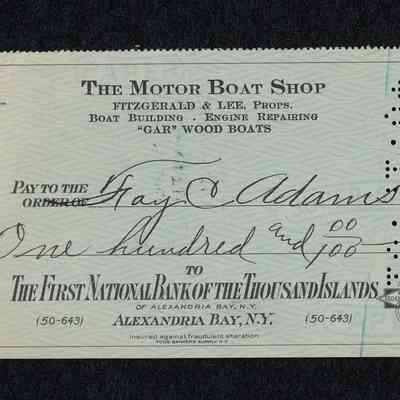 THE MOTOR BOAT SHOP
FITZGERALD & LEE, PROPS.
BOAT BUILDING - ENGINE REPAIRING
"GAR" WOOD BOATS
PAY TO THE
ORDER OF Fay C Adams
One hundred and 00/100
TO
THE FIRST NATIONAL BANK OF THE THOUSAND ISLANDS
OF ALEXANDRIA BAY, N.Y.
(50-643) ALEXANDRIA BAY, N.Y. (50-643)
Insured against fraudulent alteration